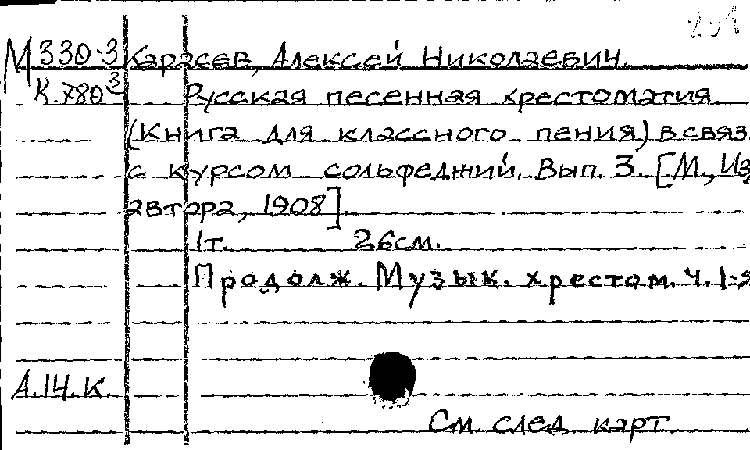 М 330-3 Карасев, Алексей Николаевич.
К.780³ Русская песенная хрестоматия
(Книга для классного пения) в связ
с курсом сольфеджий. Вып. 3. [М., Из
автора, 1908].
1т. 26см.
Продолж. Музык. хрестом. ч. 1-я
А.14.К.
См. след. карт.